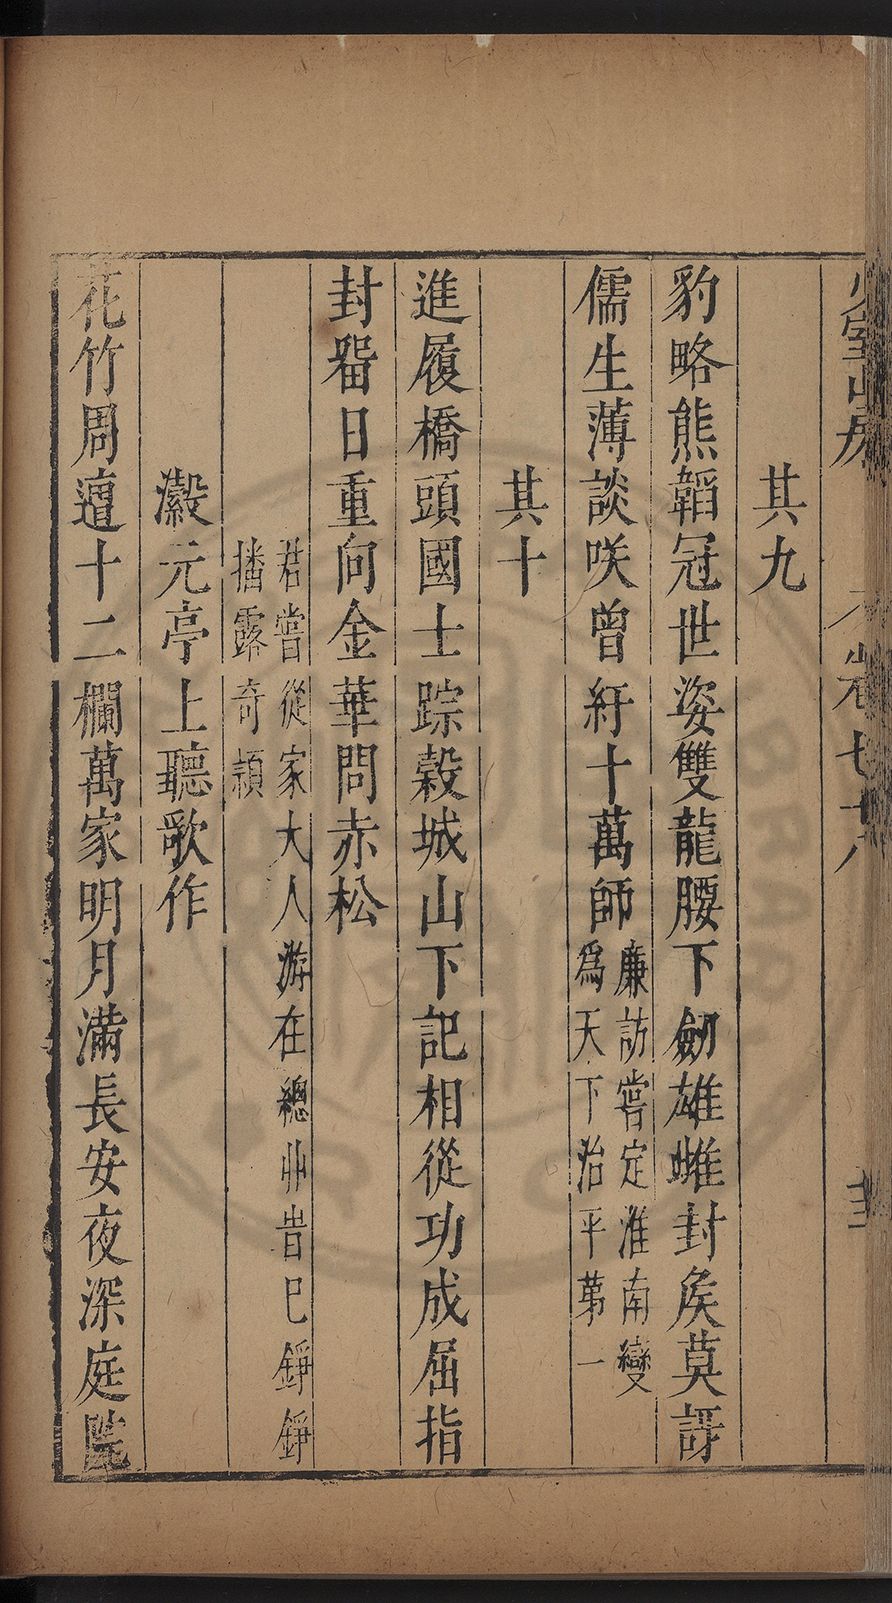 少室山房
卷七十八
其九
豹略熊韜冠世姿雙龍腰下劒雄雌封矦莫訝
儒生薄談咲曾紆十萬師廉訪嘗定淮南變
爲天下治平第一
其十
進履橋頭國士踪糓城山下記相從功成屈指
封畱日重向金華問赤松
君嘗從家大人游在總丱旹已錚錚
播露奇穎
瀫元亭上聽歌作
花竹周遭十二欄萬家明月滿長安夜深庭院